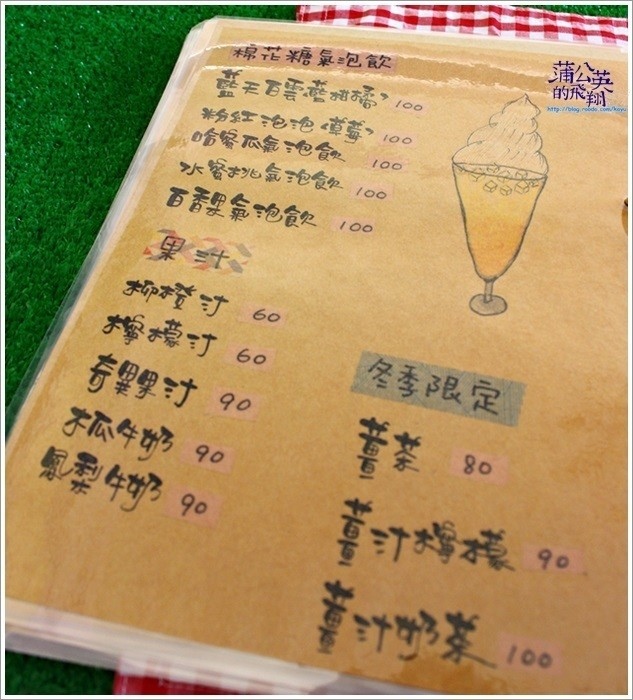 棉花糖氣泡飲
藍天白雲(蘑柑橘) 100
粉紅泡泡(草莓) 100
哈蜜瓜氣泡飲 100
水蜜桃氣泡飲 100
百香果氣泡飲 100
果汁
柳橙汁 60
檸檬汁 60
奇異果汁 90
木瓜牛奶 90
鳳梨牛奶 90
冬季限定
薑茶 80
薑汁檸檬 90
薑汁奶茶 100
蒲公英
的飛翔